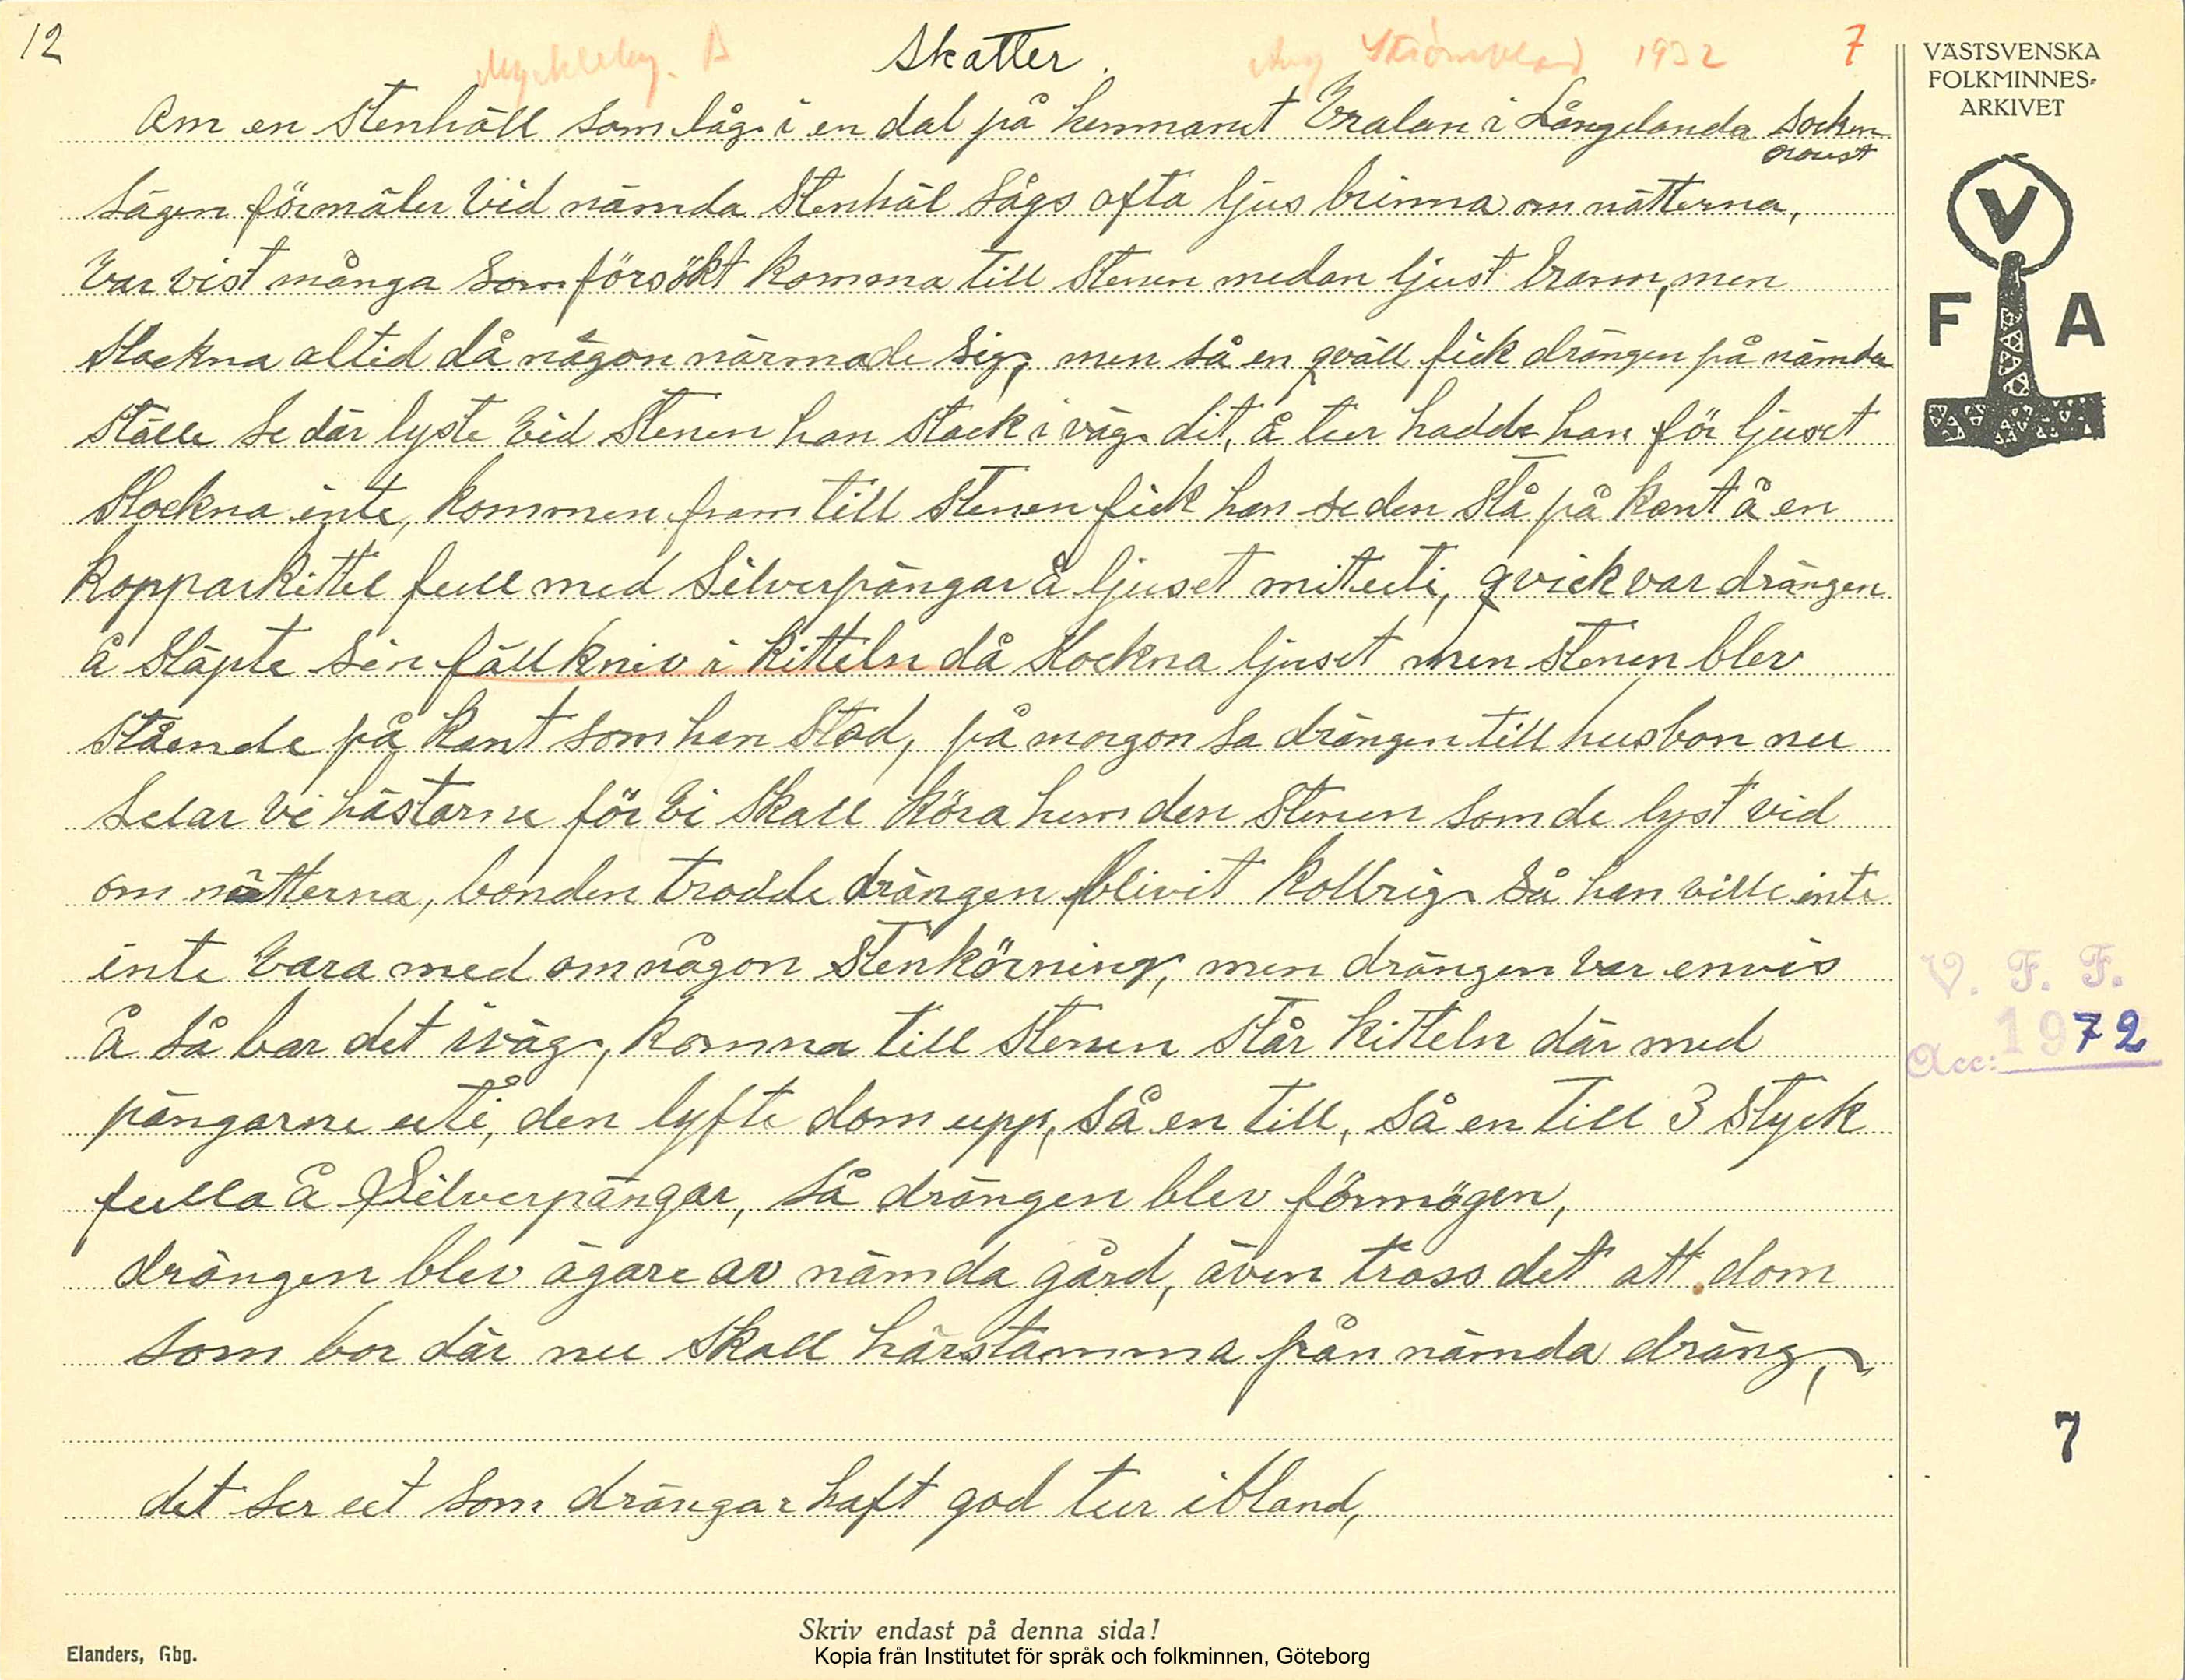 12
Myckleby. B
Skatter.
Aug Strömblad 1932
7
VÄSTSVENSKA
FOLKMINNES-
ARKIVET
Om en stenhäll som låg i en dal på hemmanet i Långelanda socken
oroust
Sägen förmäler vid nämda stenhäl sågs ofta ljus brinna om nätterna,
var vist många som försökt komma till stenen medan ljust brann, men
slockna altid då någon närmade sig, men så en qväll fick drängen på nämda
ställe se där lyste vid stenen han stack i väg dit, å tur hadde han för ljuset
slockna inte, kommen fram till stenen fick han se den stå på kant å en
kopparkittel full med silverpängar å ljuset mituti, qvick var drängen
å släpte sin fällkniv i kitteln då slockna ljuset men stenen blev
stående på kant som han stod, på morgon sa drängen till husbon nu
selar vi hästarne för vi skall köra hem den stenen som de lyst vid
om nätterna, bonden trodde drängen blivit kollrig så han ville inte
inte vara med om någon stenkörning, men drängen var envis
å så bar det iväg, komna till stenen står kitteln där med
pängarne uti, den lyfte dom upp, så en till, så en till 3 styck
fulla å Silverpängar, så drängen blev förmögen,
drängen blev ägare av nämda gård, även tross det att dom
som bor där nu skall härstamma från nämda dräng,
det ser ut som drängar haft god tur ibland,
V F A
V. F. F.
Acc: 1972
7
Skriv endast på denna sida!
Elanders, Gbg.
Kopia från Institutet för språk och folkminnen, Göteborg